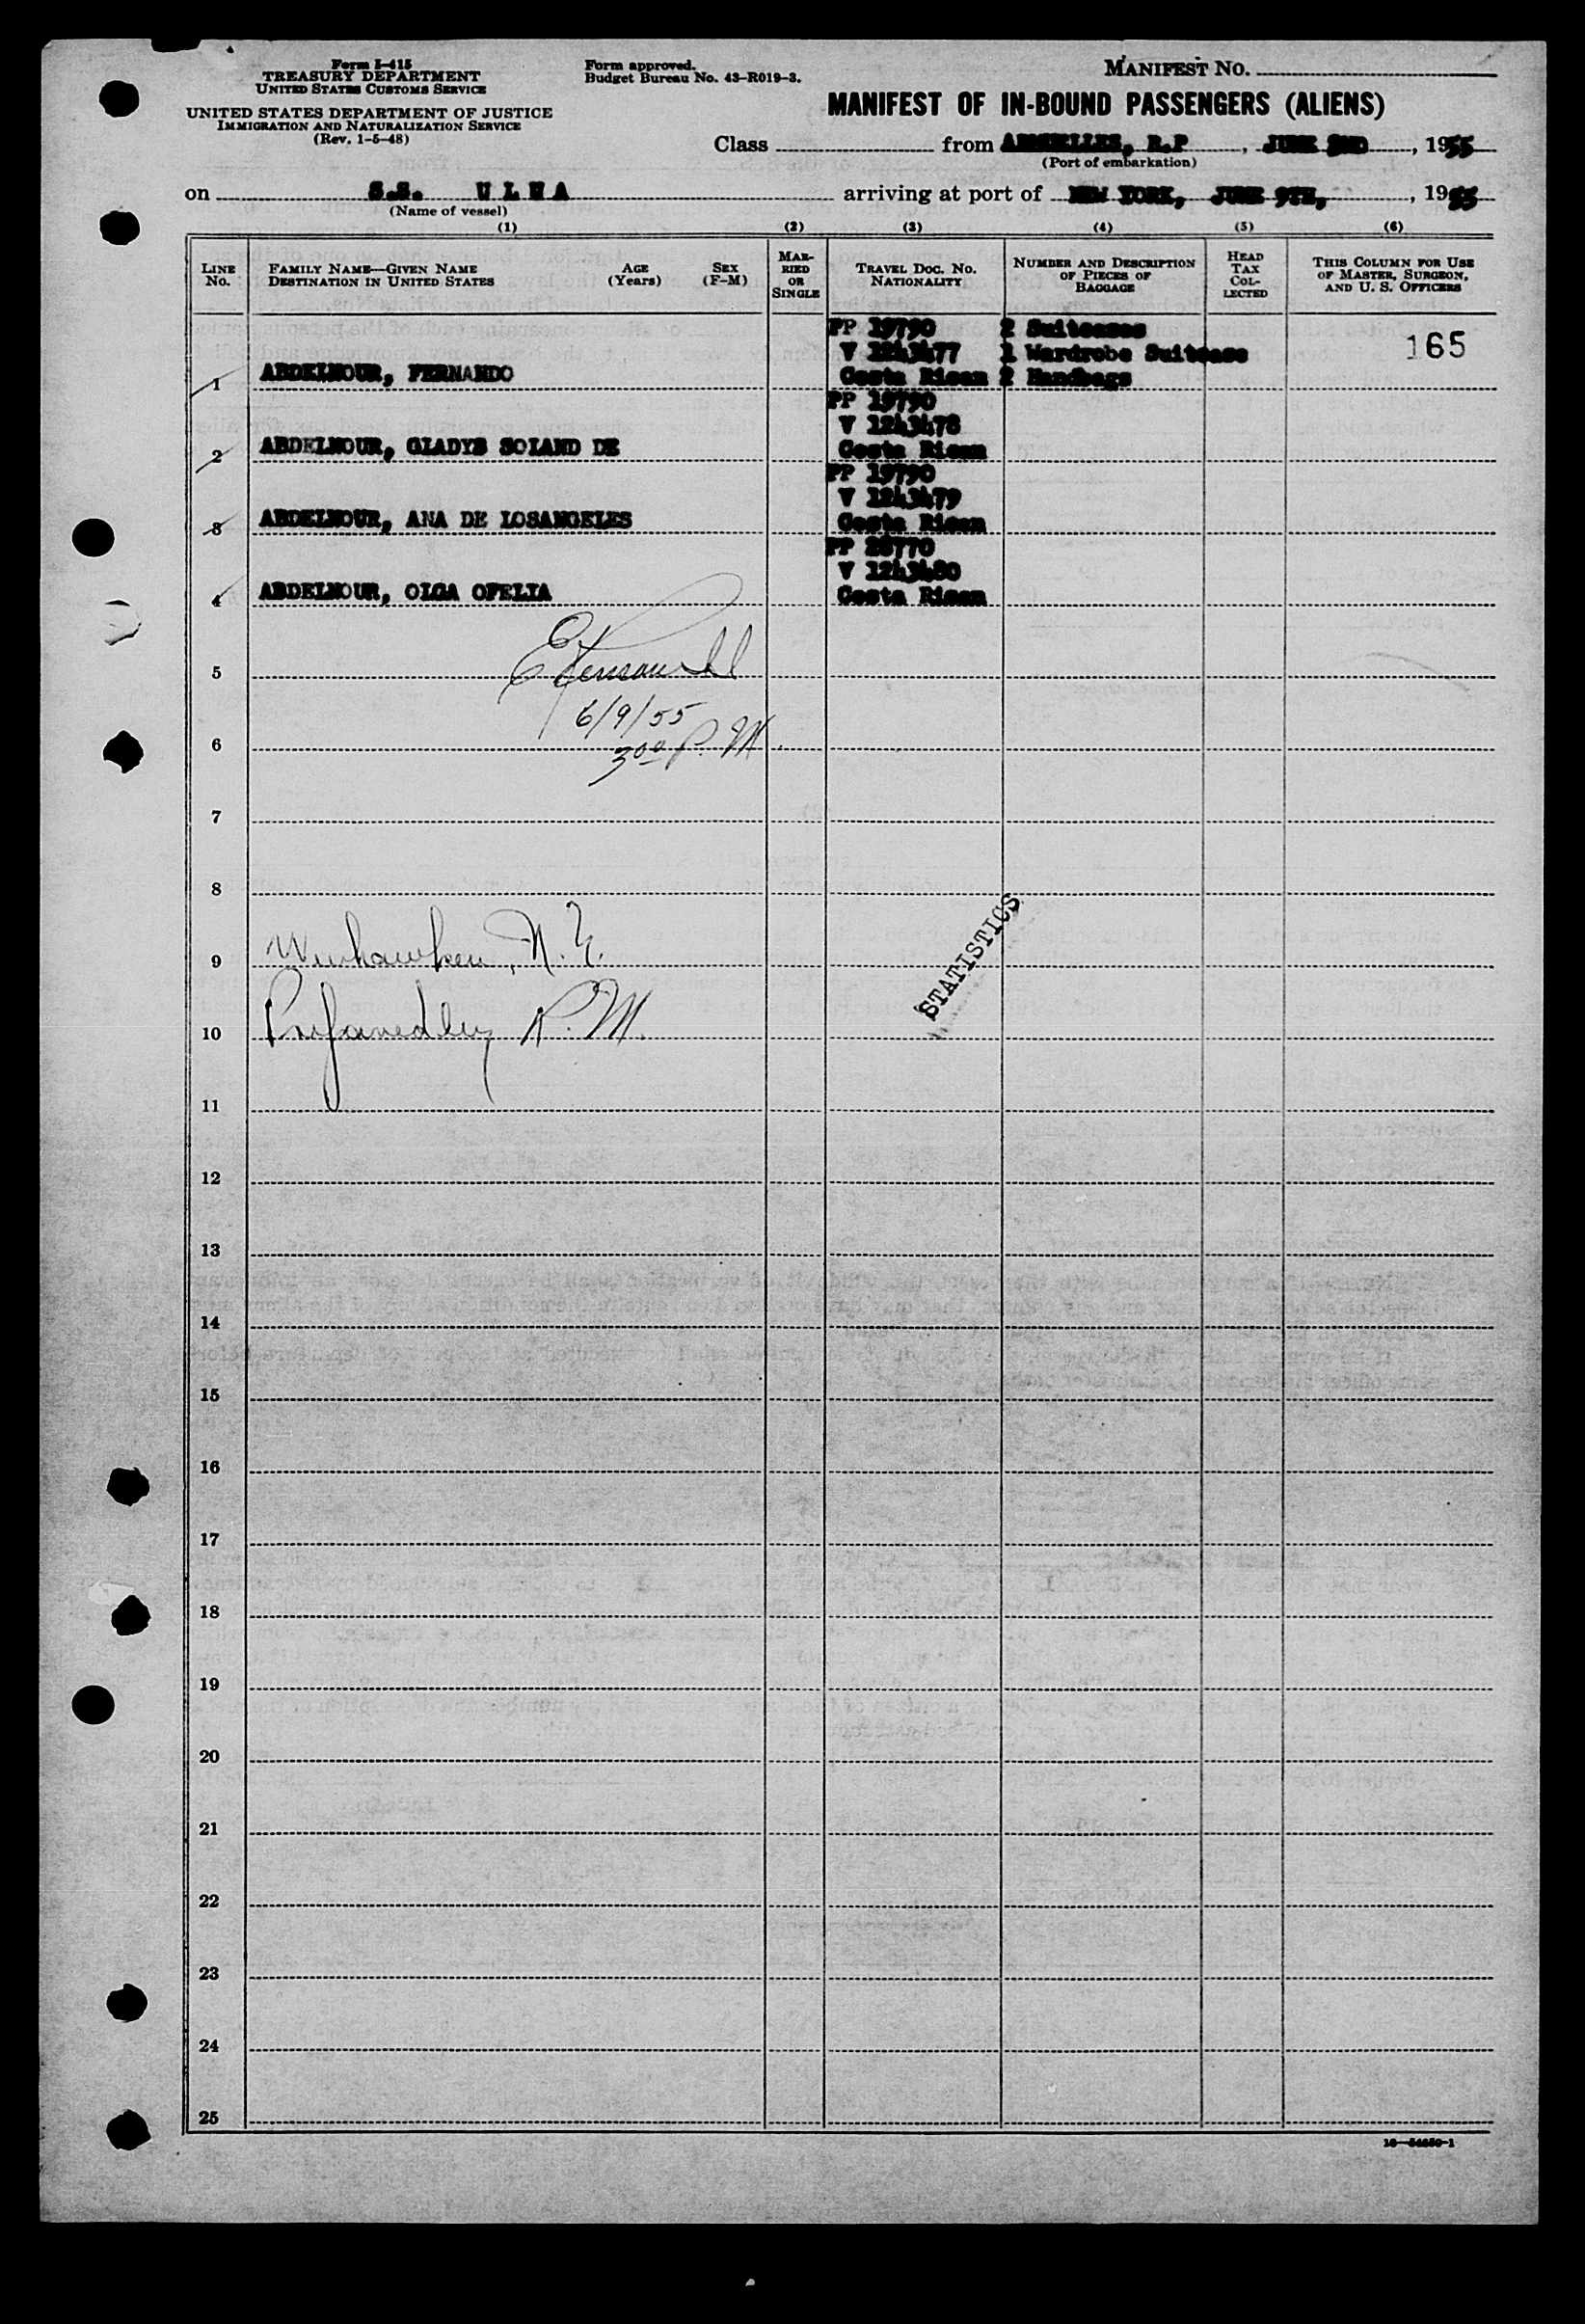 Form I-415
TREASURY DEPARTMENT
UNITED STATES CUSTOMS SERVICE
UNITED STATES DEPARTMENT OF JUSTICE
IMMIGRATION AND NATURALIZATION SERVICE
(Rev. 1-5-48)
Form approved.
Budget Bureau No. 43-R019-3.
MANIFEST NO.
MANIFEST OF IN-BOUND PASSENGERS (ALIENS)
Class from R.P , JUNE 2ND , 1955
(Port of embarkation)
on S.S. ULUA arriving at port of NEW YORK, JUNE 9TH, , 1955
(Name of vessel)
(1) (2) (3) (4) (5) (6)
LINE No. FAMILY NAME—GIVEN NAME DESTINATION IN UNITED STATES AGE (Years) SEX (F-M) MARRIED OR SINGLE TRAVEL DOC. NO. NATIONALITY NUMBER AND DESCRIPTION OF PIECES OF BAGGAGE HEAD TAX COLLECTED THIS COLUMN FOR USE OF MASTER, SURGEON, AND U. S. OFFICERS
PP 19790 2 Suitcases
V 1243477 1 Wardrobe Suitcase 165
1 ABDELNOUR, FERNANDO Costa Rican 2 Handbags
PP 19790
V 1243478
2 ABDELNOUR, GLADYS SOLANO DE Costa Rican
PP 19790
V 1243479
3 ABDELNOUR, ANA DE LOSANGELES Costa Rican
PP 28770
V 1243480
4 ABDELNOUR, OLGA OFELIA Costa Rican
5
6/9/55
6 3:00 P.M.
7
8
STATISTICS
9 Weehawken, N.
10 R.M.
11
12
13
14
15
16
17
18
19
20
21
22
23
24
25